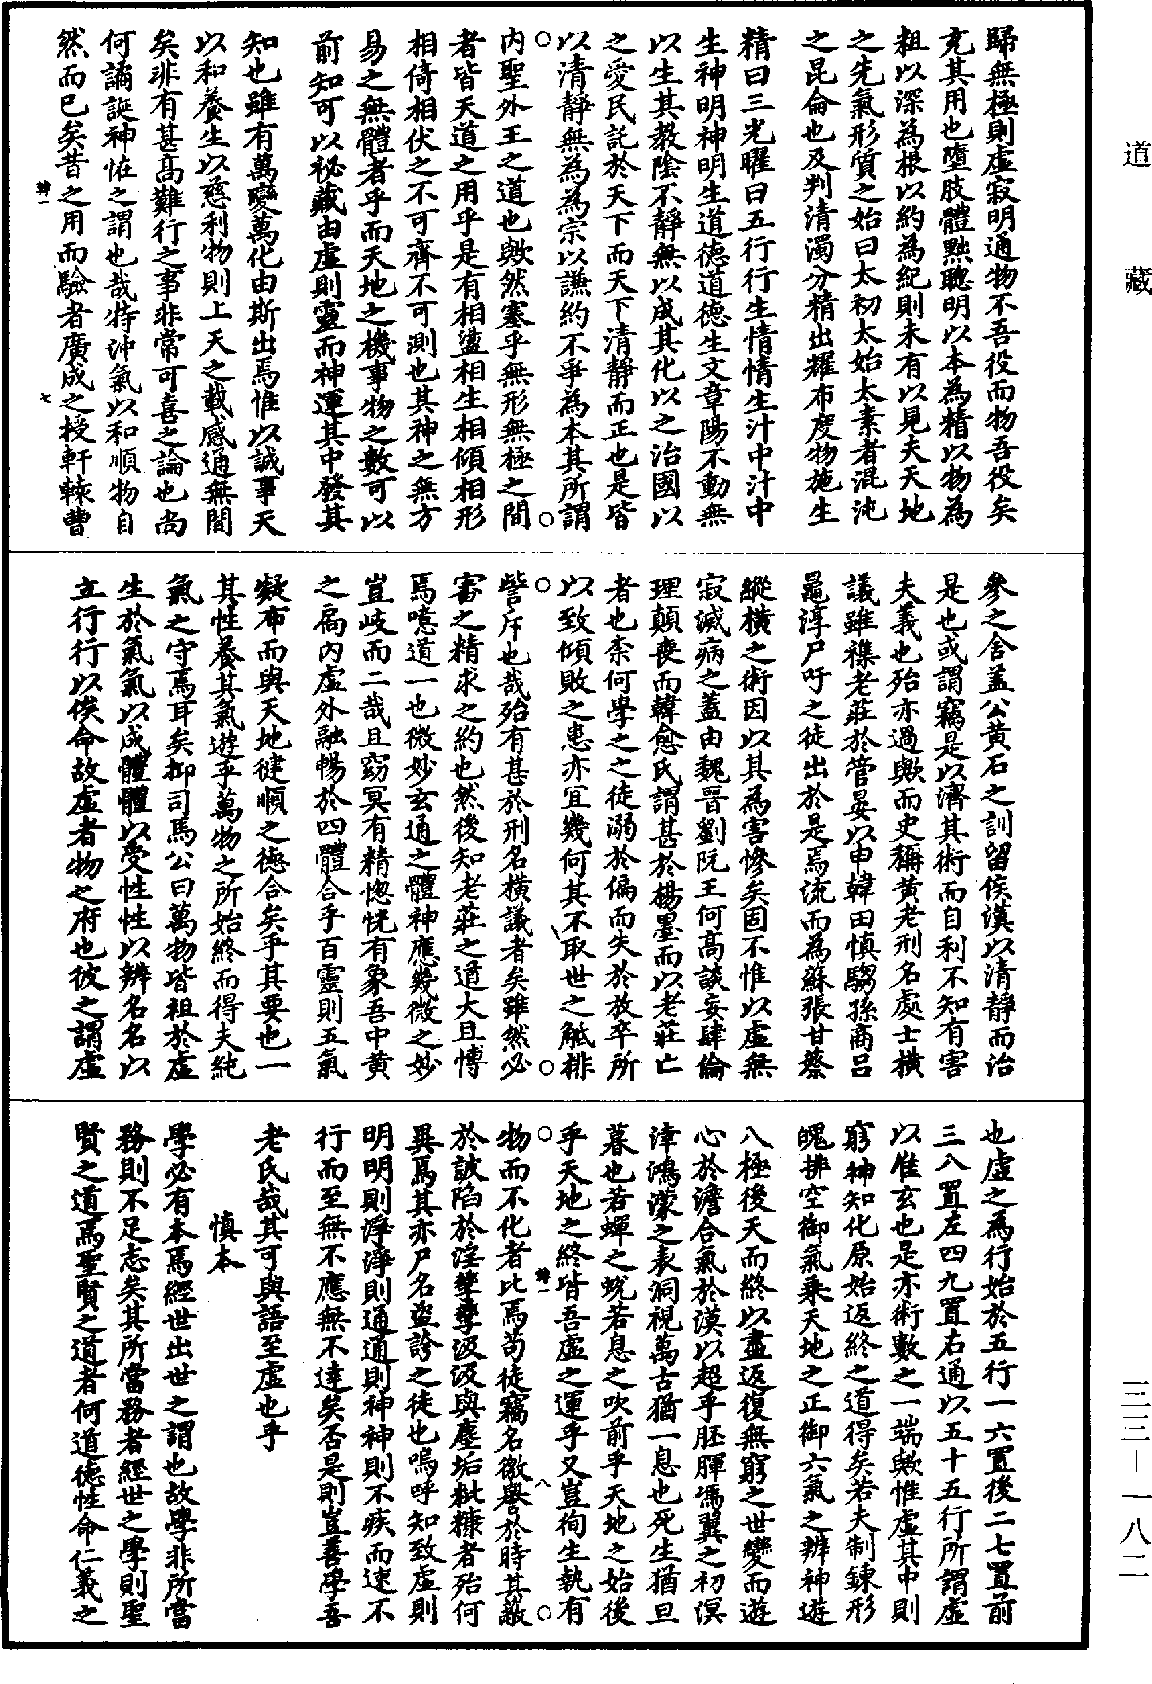 道藏
歸無極則虛寂明通物不吾役而物吾役矣
充其用也墮肢體黜聰明以本為精以物為
粗以深為根以約為紀則未有以見夫天地
之先氣形質之始曰太初太始太素者混沌
之昆侖也及判清濁分精出耀布度物施生
精曰三光曜曰五行行生情情生汁中汁中
生神明神明生道德道德生文章陽不動無
以生其教陰不靜無以成其化以之治國以
之愛民託於天下而天下清靜而正也是皆
以清靜無為為宗以謙約不爭為本其所謂
內聖外王之道也歟然塞乎無形無極之間
者皆天道之用乎是有相盪相生相傾相形
相倚相伏之不可齊不可測也其神之無方
易之無體者乎而天地之機事物之數可以
前知可以祕藏由虛則靈而神運其中發其
知也雖有萬變萬化由斯出焉惟以誠事天
以和養生以慈利物則上天之載感通無間
矣非有甚高難行之事非常可喜之論也尚
何譎誕神怪之謂也哉特沖氣以和順物自
然而已矣昔之用而驗者廣成之授軒轅曹
參之舍蓋公黃石之訓留侯漢以清靜而治
是也或謂竊是以濟其術而自利不知有害
夫義也殆亦過歟而史稱黃老刑名處士橫
議雖襍老莊於管晏以由韓田慎騶孫商呂
鼂淳尸吁之徒出於是焉流而為蘇張甘蔡
縱橫之術因以其為害慘矣固不惟以虛無
寂滅病之蓋由魏晉劉阮王何高談妄肆倫
理顛喪而韓愈氏謂甚於楊墨而以老莊亡
者也柰何學之之徒溺於偏而失於放卒所
以致傾敗之患亦宜幾何其不取世之觝排
訾斥也哉殆有甚於刑名橫議者矣雖然必
審之精求之約也然後知老莊之道大且博
焉噫道一也微妙玄通之體神應幾微之妙
豈岐而二哉且窈冥有精惚恍有象吾中黃
之扃內虛外融暢於四體合乎百靈則五氣
凝布而與天地健順之德合矣乎其要也一
其性養其氣遊乎萬物之所始終而得夫純
氣之守焉耳矣抑司馬公曰萬物皆祖於虛
生於氣氣以成體體以受性性以辨名名以
立行行以俟命故虛者物之府也彼之謂虛
也虛之為行始於五行一六置後二七置前
三八置左四九置右通以五十五行所謂虛
以準玄也是亦術數之一端歟惟虛其中則
窮神知化原始返終之道得矣若夫制鍊形
魄排空御氣乘天地之正御六氣之辨神遊
八極後天而終以盡返復無窮之世變而遊
心於澹合氣於漠以超乎胚腪馮翼之初溟
涬鴻濛之表洞視萬古猶一息也死生猶旦
暮也若蟬之蛻若息之吹前乎天地之始後
乎天地之終皆吾虛之運乎又豈徇生執有
物而不化者比焉苟徒竊名徼譽於時其詖
於詖陷於淫孳孳汲汲與塵垢粃糠者殆何
異焉其亦尸名盜誇之徒也嗚呼知致虛則
明明則淨淨則通通則神神則不疾而速不
行而至無不應無不達矣否是則豈善學吾
老氏哉其可與語至虛也乎
慎本
學必有本焉經世出世之謂也故學非所當
務則不足志矣其所當務者經世之學則聖
賢之道焉聖賢之道者何道德性命仁義之
三三—一八二